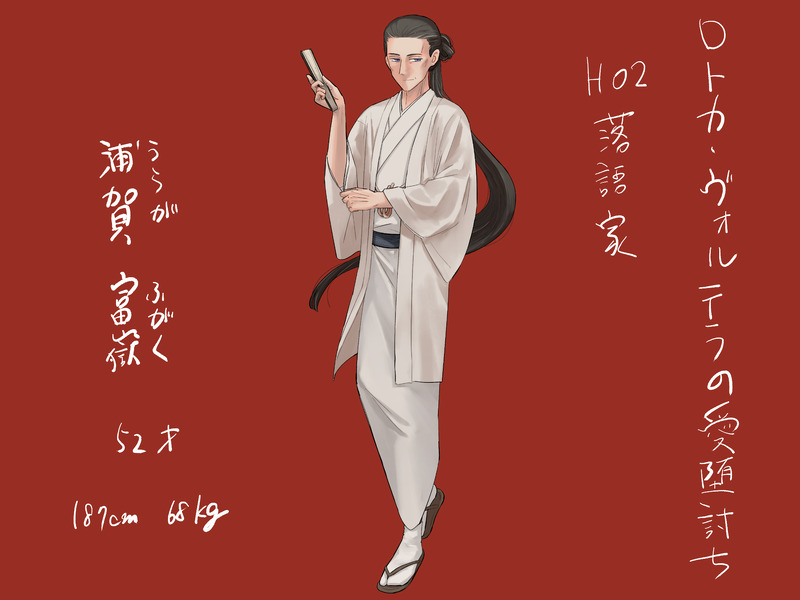 ロトカ・ヴォルテラの受堕討ち
HO2
落語家
うらが
浦賀
ふがく
富嶽
52才
187cm 68kg